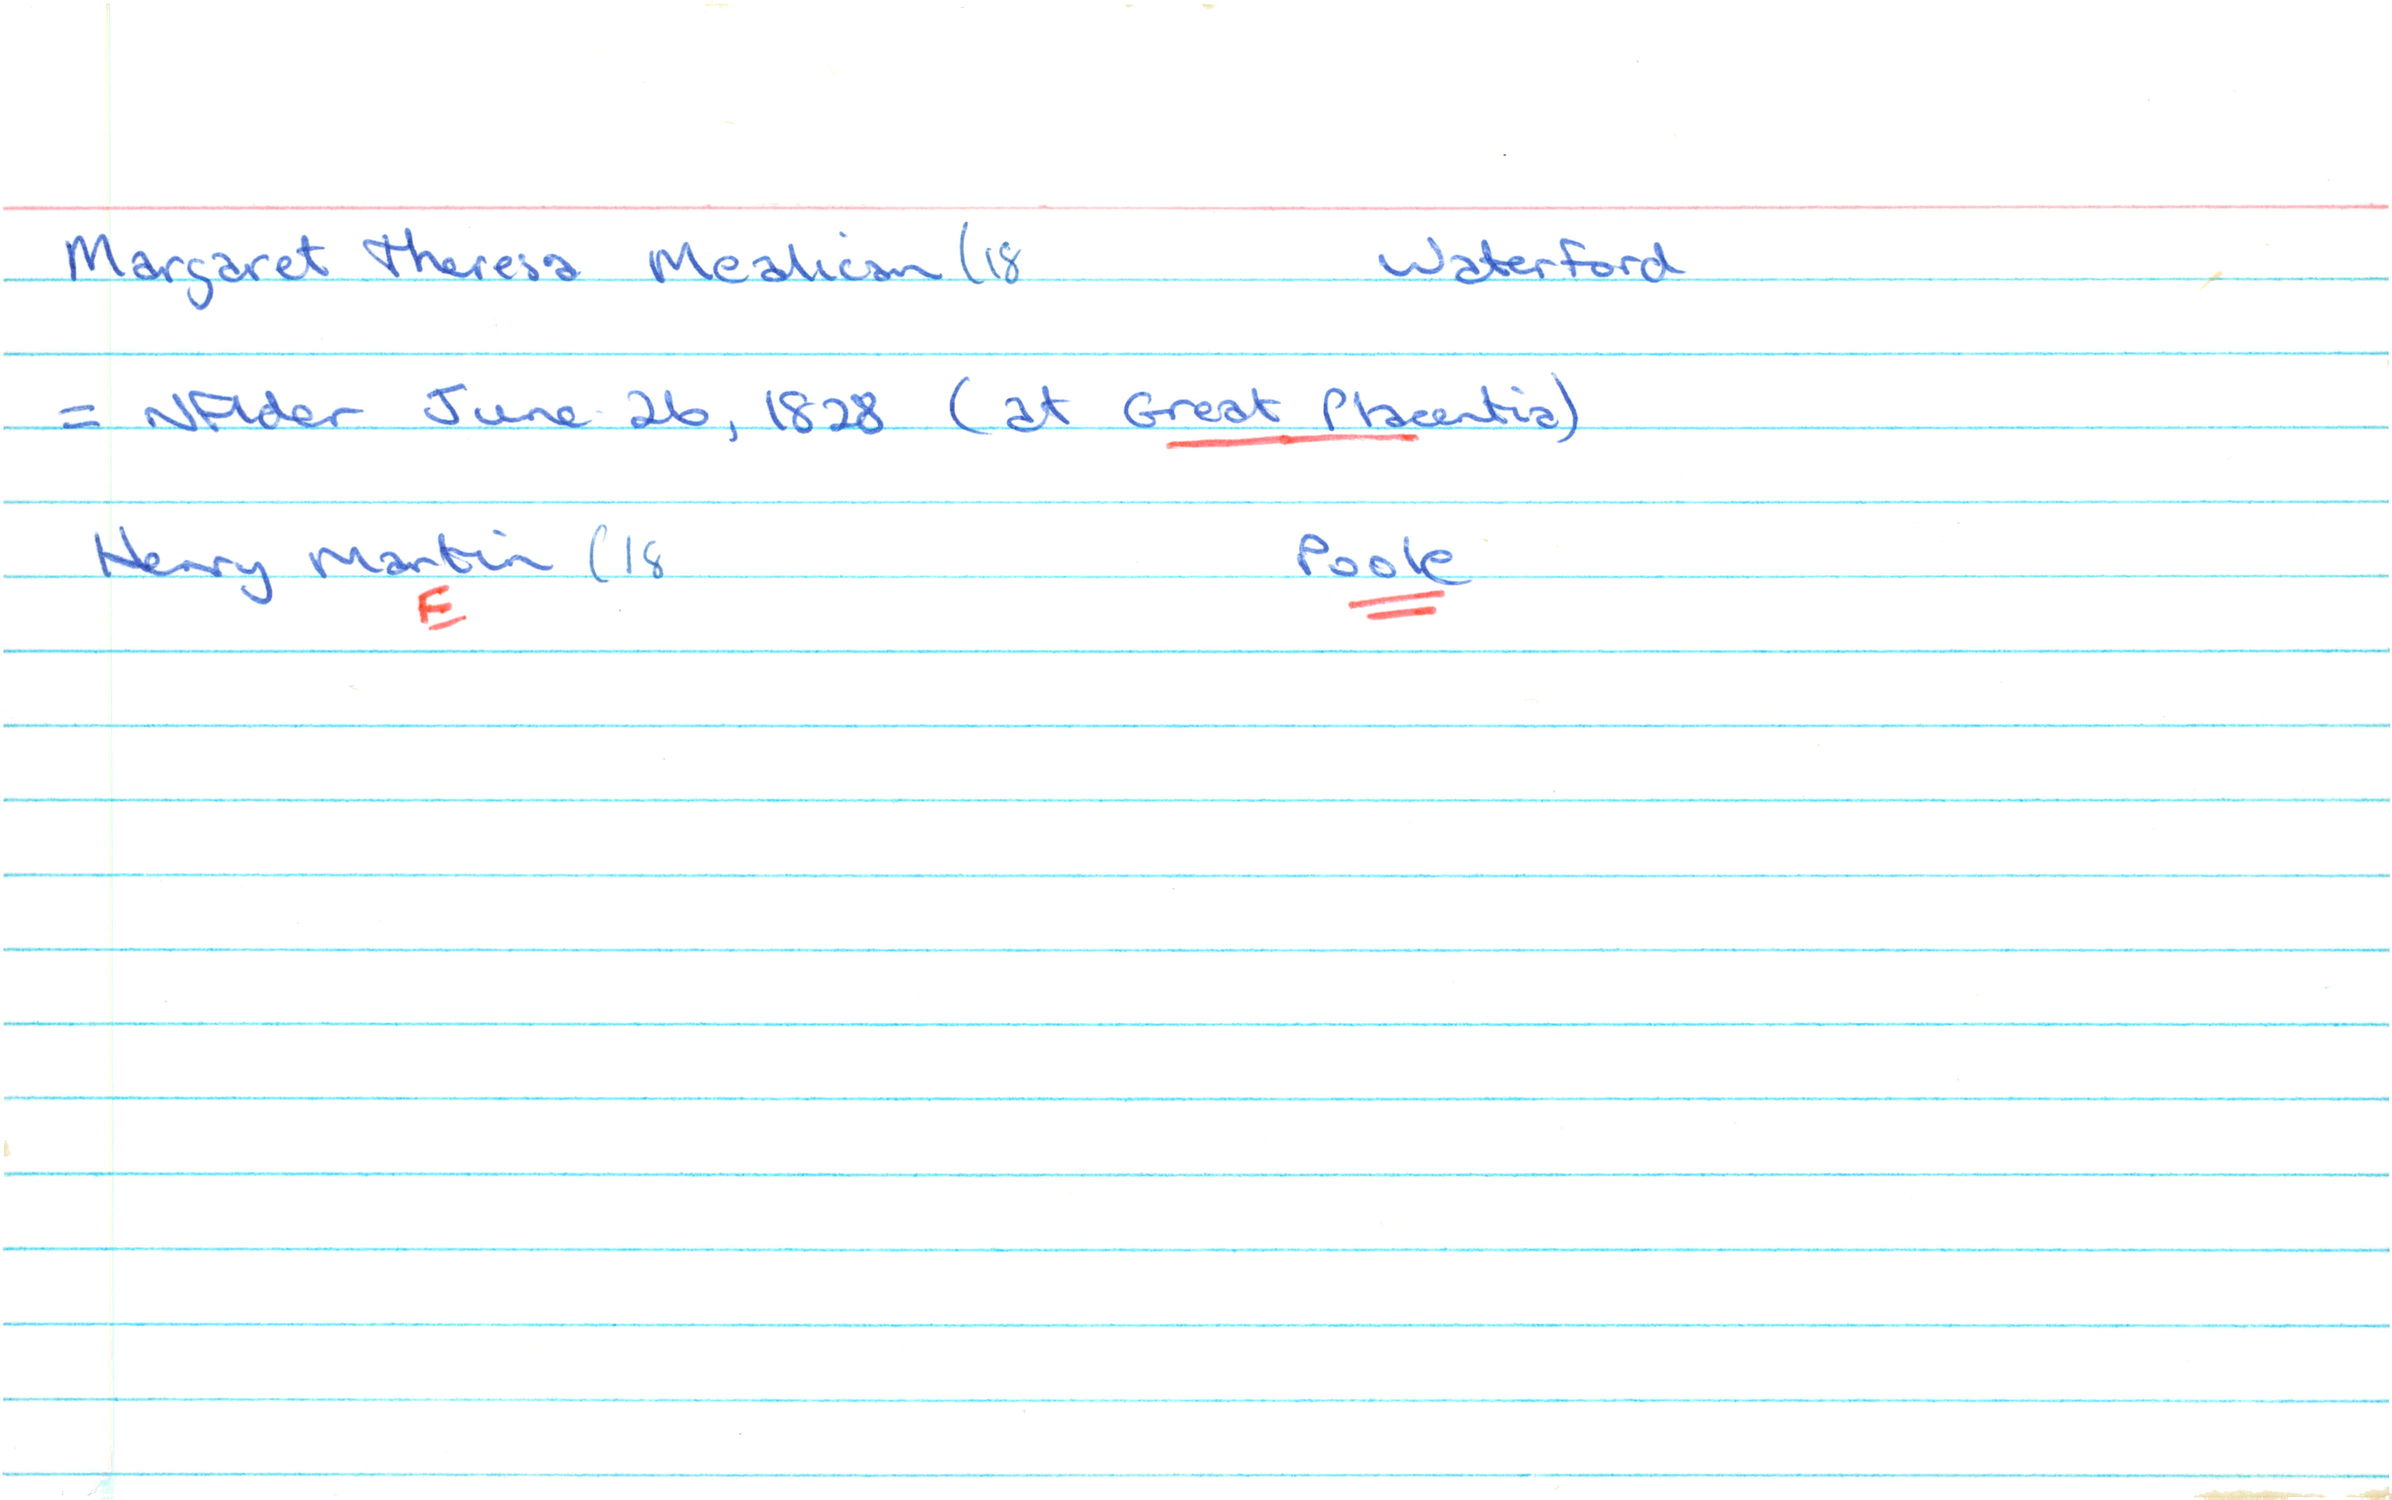 Margaret Theresa Mealican (18 Waterford
= Nflder June 26, 1828 (at Great Placentia)
Henry Martin (18 Poole
E